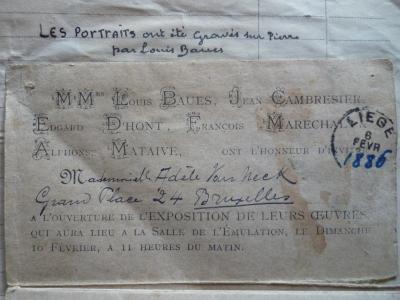 LES PORTRAITS ont été Gravés sur Pierre
par Louis Baues
MMrs Louis Baues, Jean Cambresier,
Edgard D'Hont, François Marechal,
Alphons. Mataive, ont l'honneur d'inviter
Mademoiselle Adèle Van Neck
Grand Place 24 Bruxelles
a l'ouverture de l'EXPOSITION DE LEURS ŒUVRES,
qui aura lieu a la Salle de l'Émulation, le Dimanche
10 Février, a 11 heures du matin.
LIEGE
6
FEVR
1886